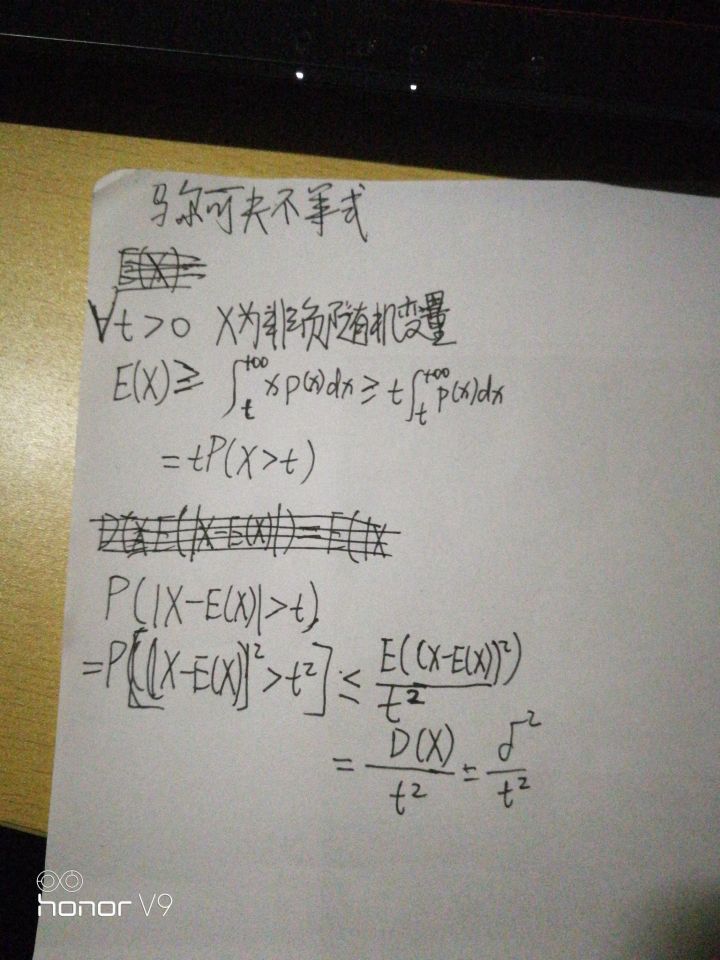 马尔可夫不等式
∀t>0 X为非负随机变量
E(X)≥ ∫_t^{+∞} x p(x)dx ≥ t∫_t^{+∞} p(x)dx
=tP(X>t)
P(|X-E(X)|>t)
=P[(X-E(X))²>t²] ≤ E((X-E(X))²)/t²
= D(X)/t² = σ²/t²
honor V9